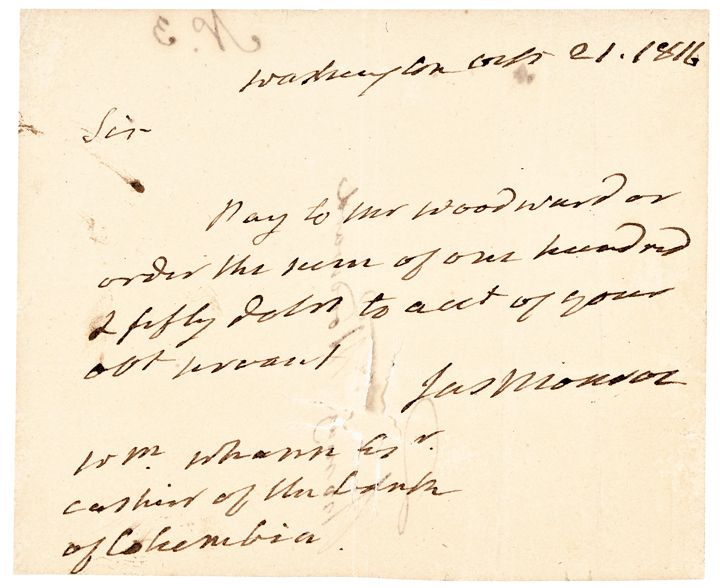 N. 3
Washington Octr 21. 1816
Sir
Pay to Mr Woodward or
order the sum of one hundred
& fifty dolrs to acct of your
obt servant
Jas Monroe
Wm. Whann Esqr.
cashier of the Bank
of Columbia.